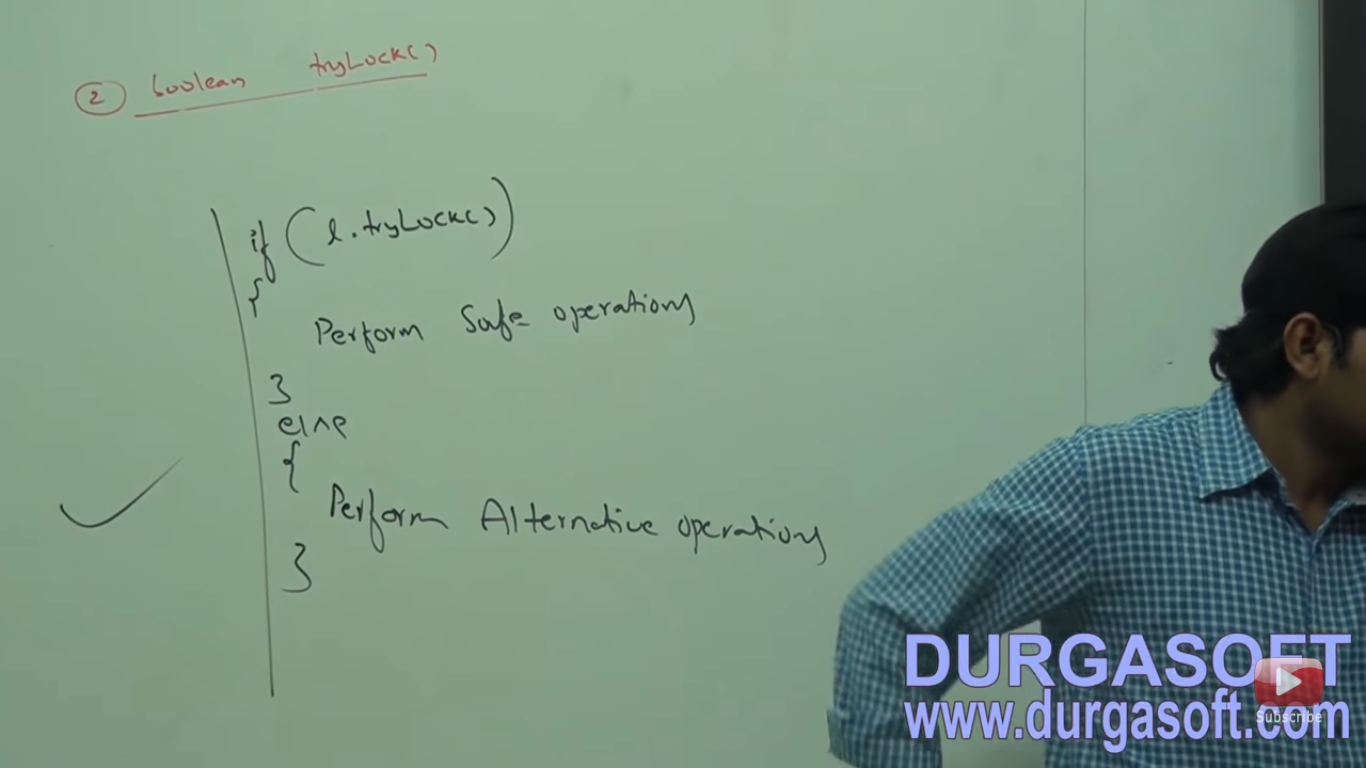 2 boolean tryLock()
if (l.tryLock())
{
Perform Safe operations
}
else
{
Perform Alternative operations
}
DURGASOFT
www.durgasoft.com
Subscribe